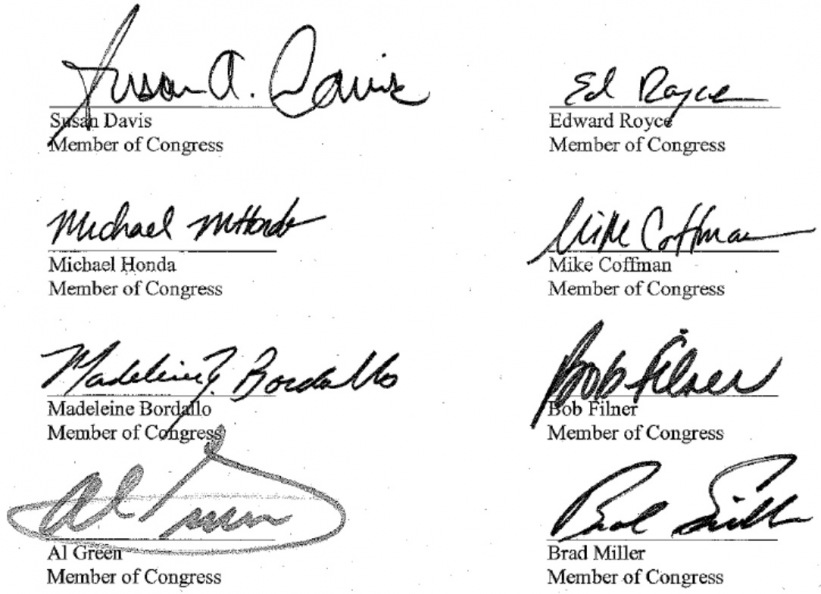 Susan A. Davis
Susan Davis
Member of Congress
Ed Royce
Edward Royce
Member of Congress
Michael M Honda
Michael Honda
Member of Congress
Mike Coffman
Mike Coffman
Member of Congress
Madeleine Z. Bordallo
Madeleine Bordallo
Member of Congress
Bob Filner
Bob Filner
Member of Congress
Al Green
Al Green
Member of Congress
Brad Miller
Brad Miller
Member of Congress